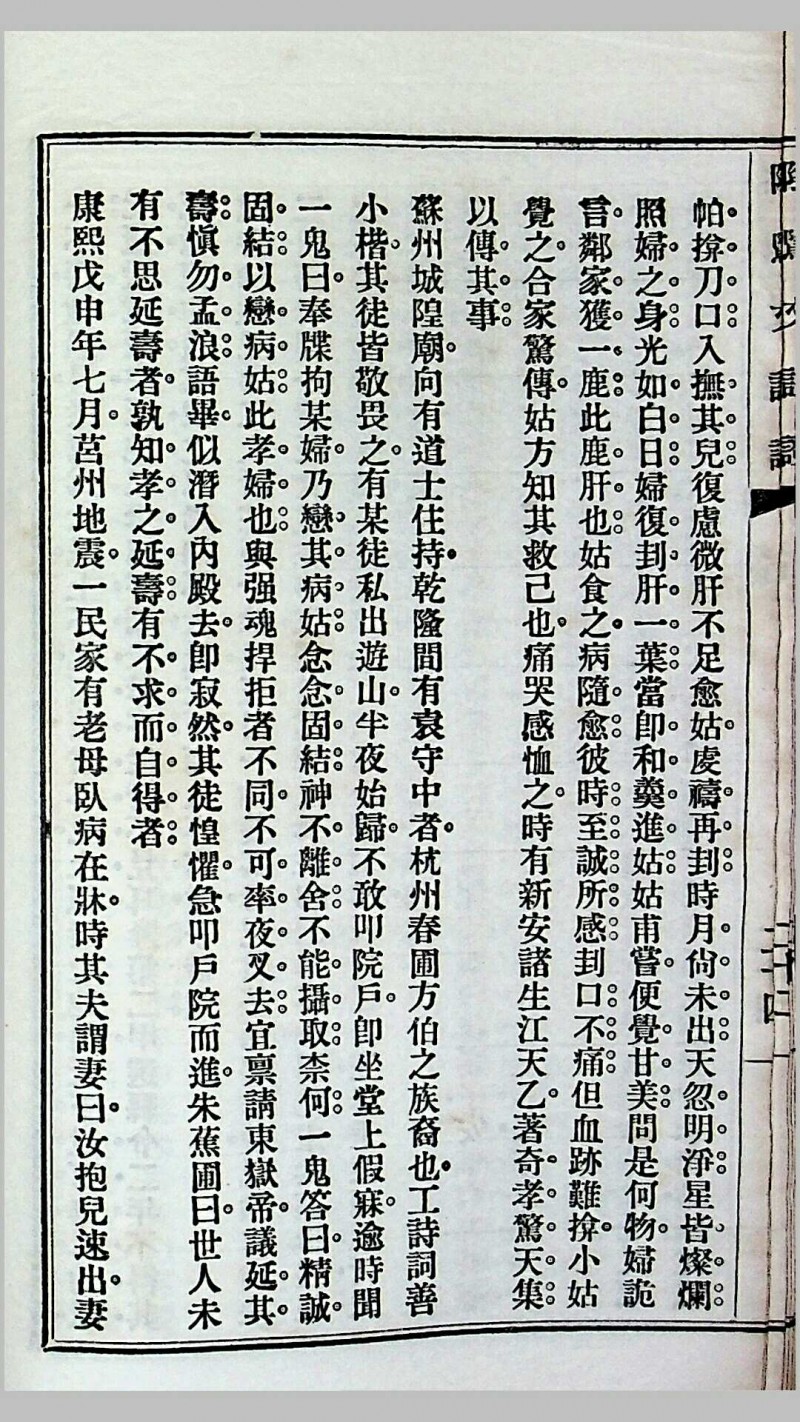 帕揜刀口入撫其兒復慮微肝不足愈姑處禱再刲時月尙未出天忽明淨星皆燦爛
照婦之身光如白日婦復刲肝一葉當卽和羹進姑姑甫嘗便覺甘美問是何物婦詭
言鄰家獲一鹿此鹿肝也姑食之病隨愈彼時至誠所感刲口不痛但血跡難揜小姑
覺之合家驚傳姑方知其救己也痛哭感恤之時有新安諸生江天乙著奇孝驚天集
以傳其事
蘇州城隍廟向有道士住持乾隆間有袁守中者杭州春圃方伯之族裔也工詩詞善
小楷其徒皆敬畏之有某徒私出遊山半夜始歸不敢叩院戶卽坐堂上假寐逾時聞
一鬼曰奉牒拘某婦乃戀其病姑念念固結神不離舍不能攝取柰何一鬼答曰精誠
固結以戀病姑此孝婦也與强魂捍拒者不同不可率夜叉去宜禀請東嶽帝議延其
壽愼勿孟浪語畢似潛入內殿去卽寂然其徒惶懼急叩戶院而進朱蕉圃曰世人未
有不思延壽者孰知孝之延壽有不求而自得者
康熙戊申年七月莒州地震一民家有老母臥病在牀時其夫謂妻曰汝抱兒速出妻
二十四